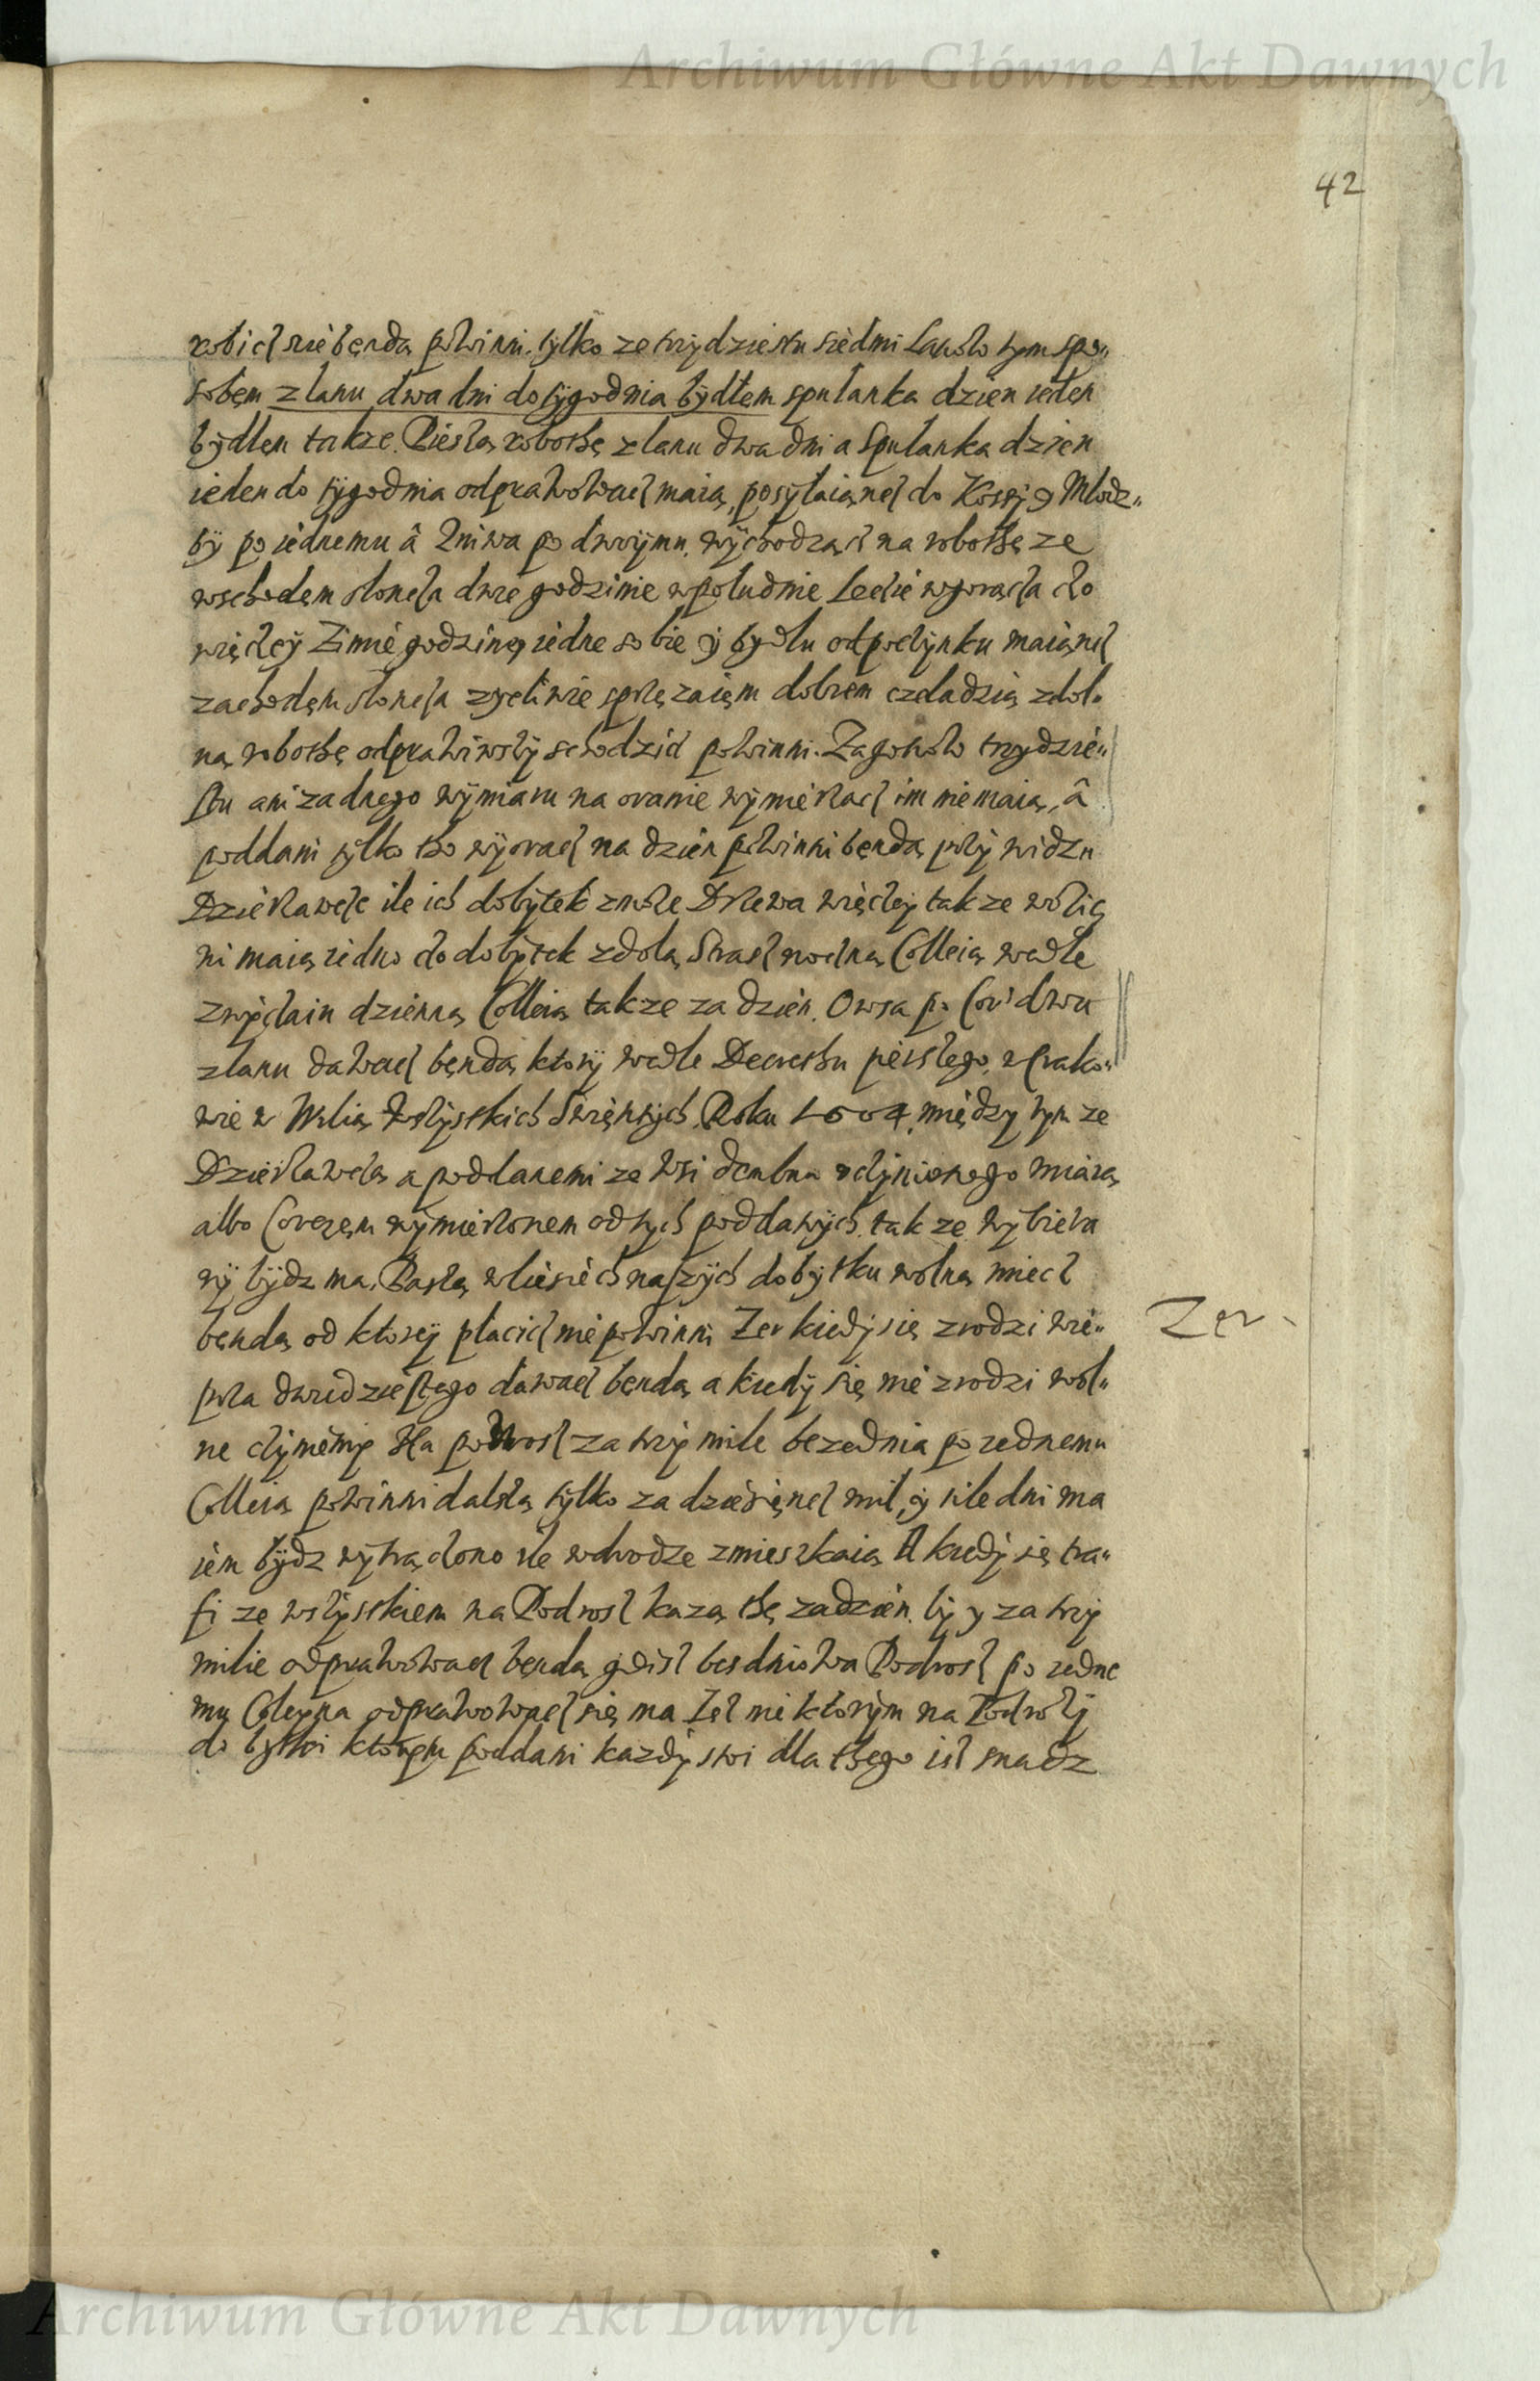 Archiwum Główne Akt Dawnych
42
robicz nie bęndą powinni. tylko ze trzydziestu siedmi Lanow tym spo„
sobem z lanu dwa dni do tygodnia bydłem spułanka dzien ieden
bydłem takze. Pieszą robothę z lanu dwa dni a spułanka dzien
ieden do tygodnia odprawowacz maią, posyłaiąncz do Kossy y Młodz„
by po iednemu â Zniwa po dwoymu. wychodząci na robothę ze
wschodem słoncza dwie godzinie wpołudnie Leczie wgorącza czo
więczey Zimie godzinę iedne sobie y bydłu odpoczynku maiąncz
zachodem słoncza zyczliwie sprzęzaiem dobrem czeladzią zdol„
ną robothę odprawiwszy schodzicz powinni. Zagonow trzydzie„
stu ani zadnego wymiaru na oranie wymierzacz im nie maią, â
poddani tylko tho wyoracz na dzien powinni bęndą przy widzu
Dzierzawcze ile ich dobytek zmoze Drzewa więczey takze wozic
ni maią iedno czo dobytek zdoła Straz noczną Colleią wedle
zwyczaiu dzienną Colleią takze za dzien. Owsa po Cor: dwu
z lanu dawacz bęndą ktory wedle Decrethu pierszego w Crako„
wie w Wilią Wszystkich Swiętych Roku 1604. między tym ze
Dzierzawczą a poddanemi ze wsi dembna uczynionego miarą
albo Corczem wymierzonem od tych poddanych takze wybiera
ny bydz ma. Paszą w lesiech naszych dobytku wolną miecz
bęndą od ktorey płacicz nie powinni Zer kiedy się zrodzi wie„
prza dwudziestego dawacz bęndą a kiedy się nie zrodzi wol„
ne czymemy Na podwosz za trzy mile bezednia po iednemu
Colleią powinni dalszą tylko za dziesięncz mil, y tile dni ma
iem bydz wytrączono ile w drodze zmieszkaią A kiedy się tra„
fi ze wszystkiem na Podrosz kazą the za dzien. by y za trzy
milie odprawowacz bęndą gdisz bezdniowa Podrosz po iedne
mu Coleyną odprawowacz się ma Zesz niektorym na Podrozy
do bytki ktorym poddani kazdy swoi dla thego isz snadz
Zer.
Archiwum Główne Akt Dawnych